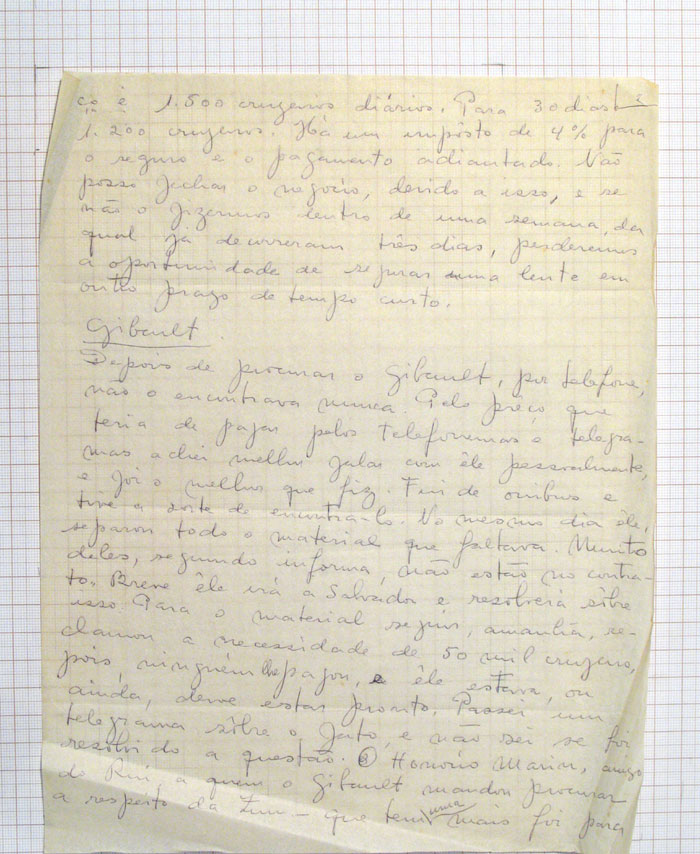 ço é 1.500 cruzeiros diários. Para 30 dias 2
1.200 cruzeiros. Há um impôsto de 4% para
o seguro e o pagamento adiantado. Não
posso fechar o negócio, devido a isso, e se
não o fizermos dentro de uma semana, da
qual já decorreram três dias, perderemos
a oportunidade de segurar uma lente em
outro prazo de tempo curto.
Gibault
Depois de procurar o Gibault, por telefone,
não o encontrava nunca. Pelo prêço que
teria de pagar pelos telefonemas e telegra-
mas achei melhor falar com êle pessoalmente,
e foi o melhor que fiz. Fui de onibus e
tive a sorte de encontra-lo. No mesmo dia êle,
separou todo o material que faltava. Muito
deles, segundo informa, não estão no contra-
to. Breve êle irá a Salvador e resolverá sôbre
isso. Para o material seguir, amanhã, re-
clamou a necessidade de 50 mil cruzeiros,
pois, ninguém lhe pagou, e êle estava, ou
ainda, deve estar pronto. Passei um
telegrama sôbre o fato, e não sei se foi
resolvido a questão. O Honório Marin, amigo
do Rui, a quem o Gibault mandou procurar
a respeito da Zum — que tem uma mais foi para